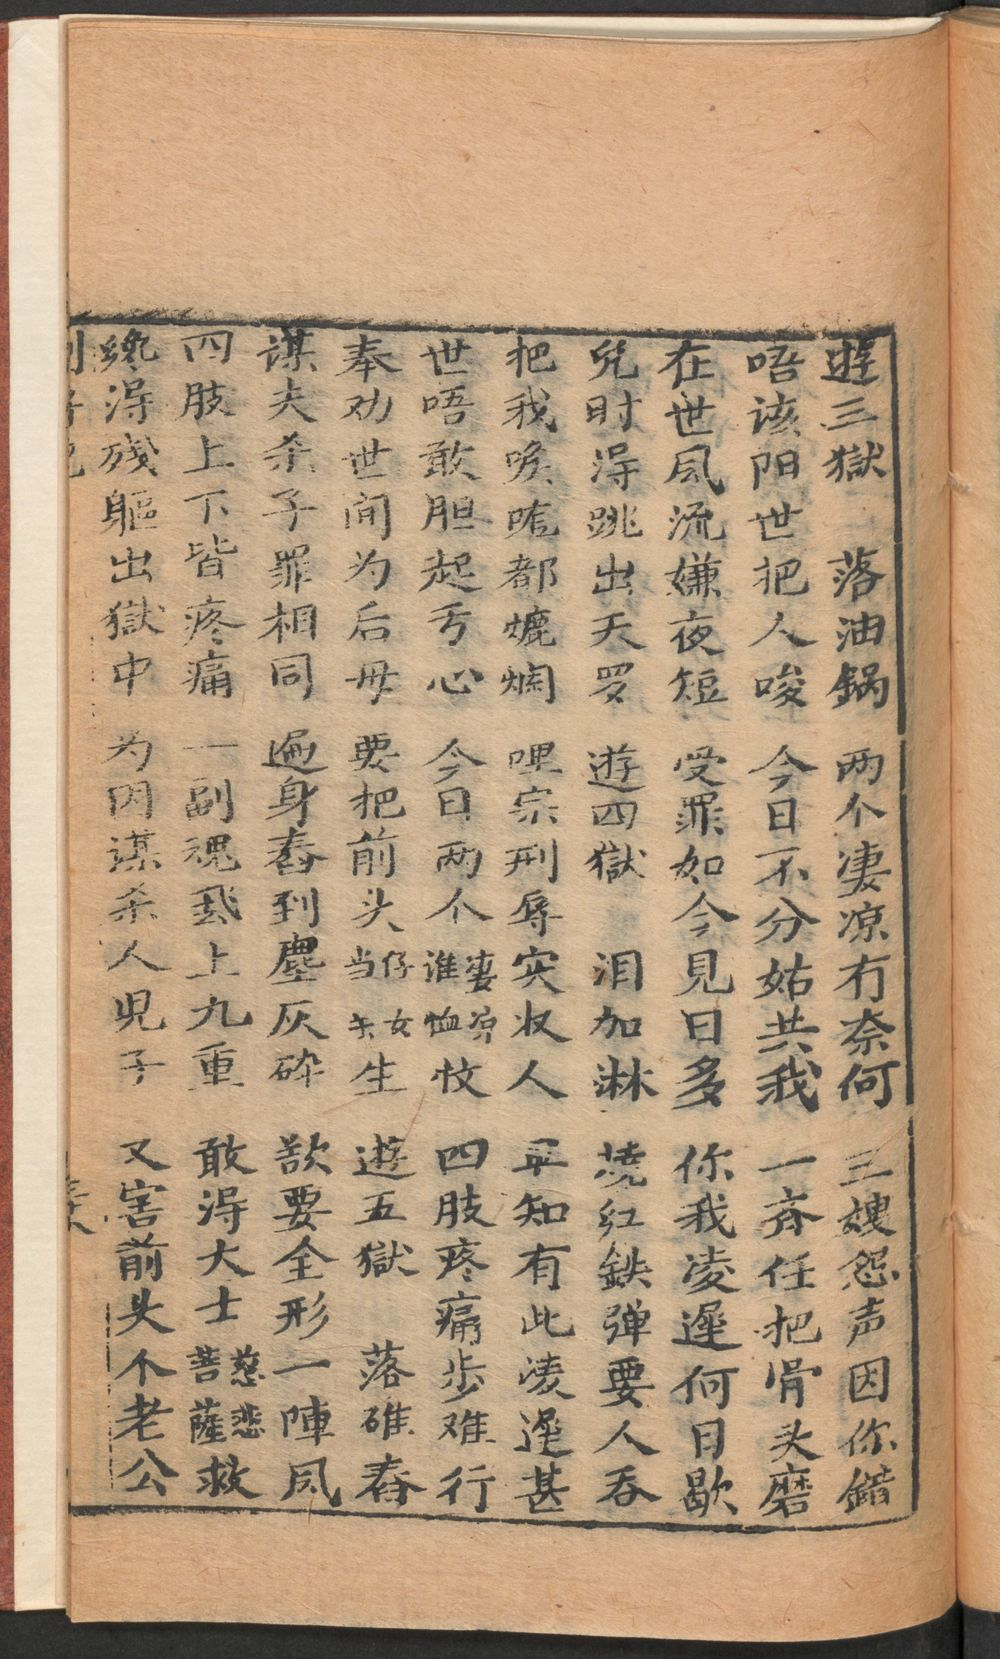 遊三獄　落油鍋　两个凄凉冇奈何　三嫂怨声因你錯
唔该阳世把人唆　今日不分姑共我　一斉任把骨头磨
在世風流嫌夜短　受罪如今見日多　你我凌遲何日歇
児时淂跳出天罗　遊四獄　泪加淋　燒红鉄弹要人吞
把我喉嚨都熝爛　哩宗刑辱实收人　早知有此凌遲甚
世唔敢胆起亏心　今日两个凄凉谁恤忟　四肢疼痛步难行
奉劝世间为后母　要把前头仔女当亲生　遊五獄　落碓舂
谋夫杀子罪相同　遍身舂到塵灰碎　欲要全形一陣風
四肢上下皆疼痛　一副魂飛上九重　敢淂大士慈悲菩薩救
纔淂残軀出獄中　为因谋杀人児子　又害前头个老公